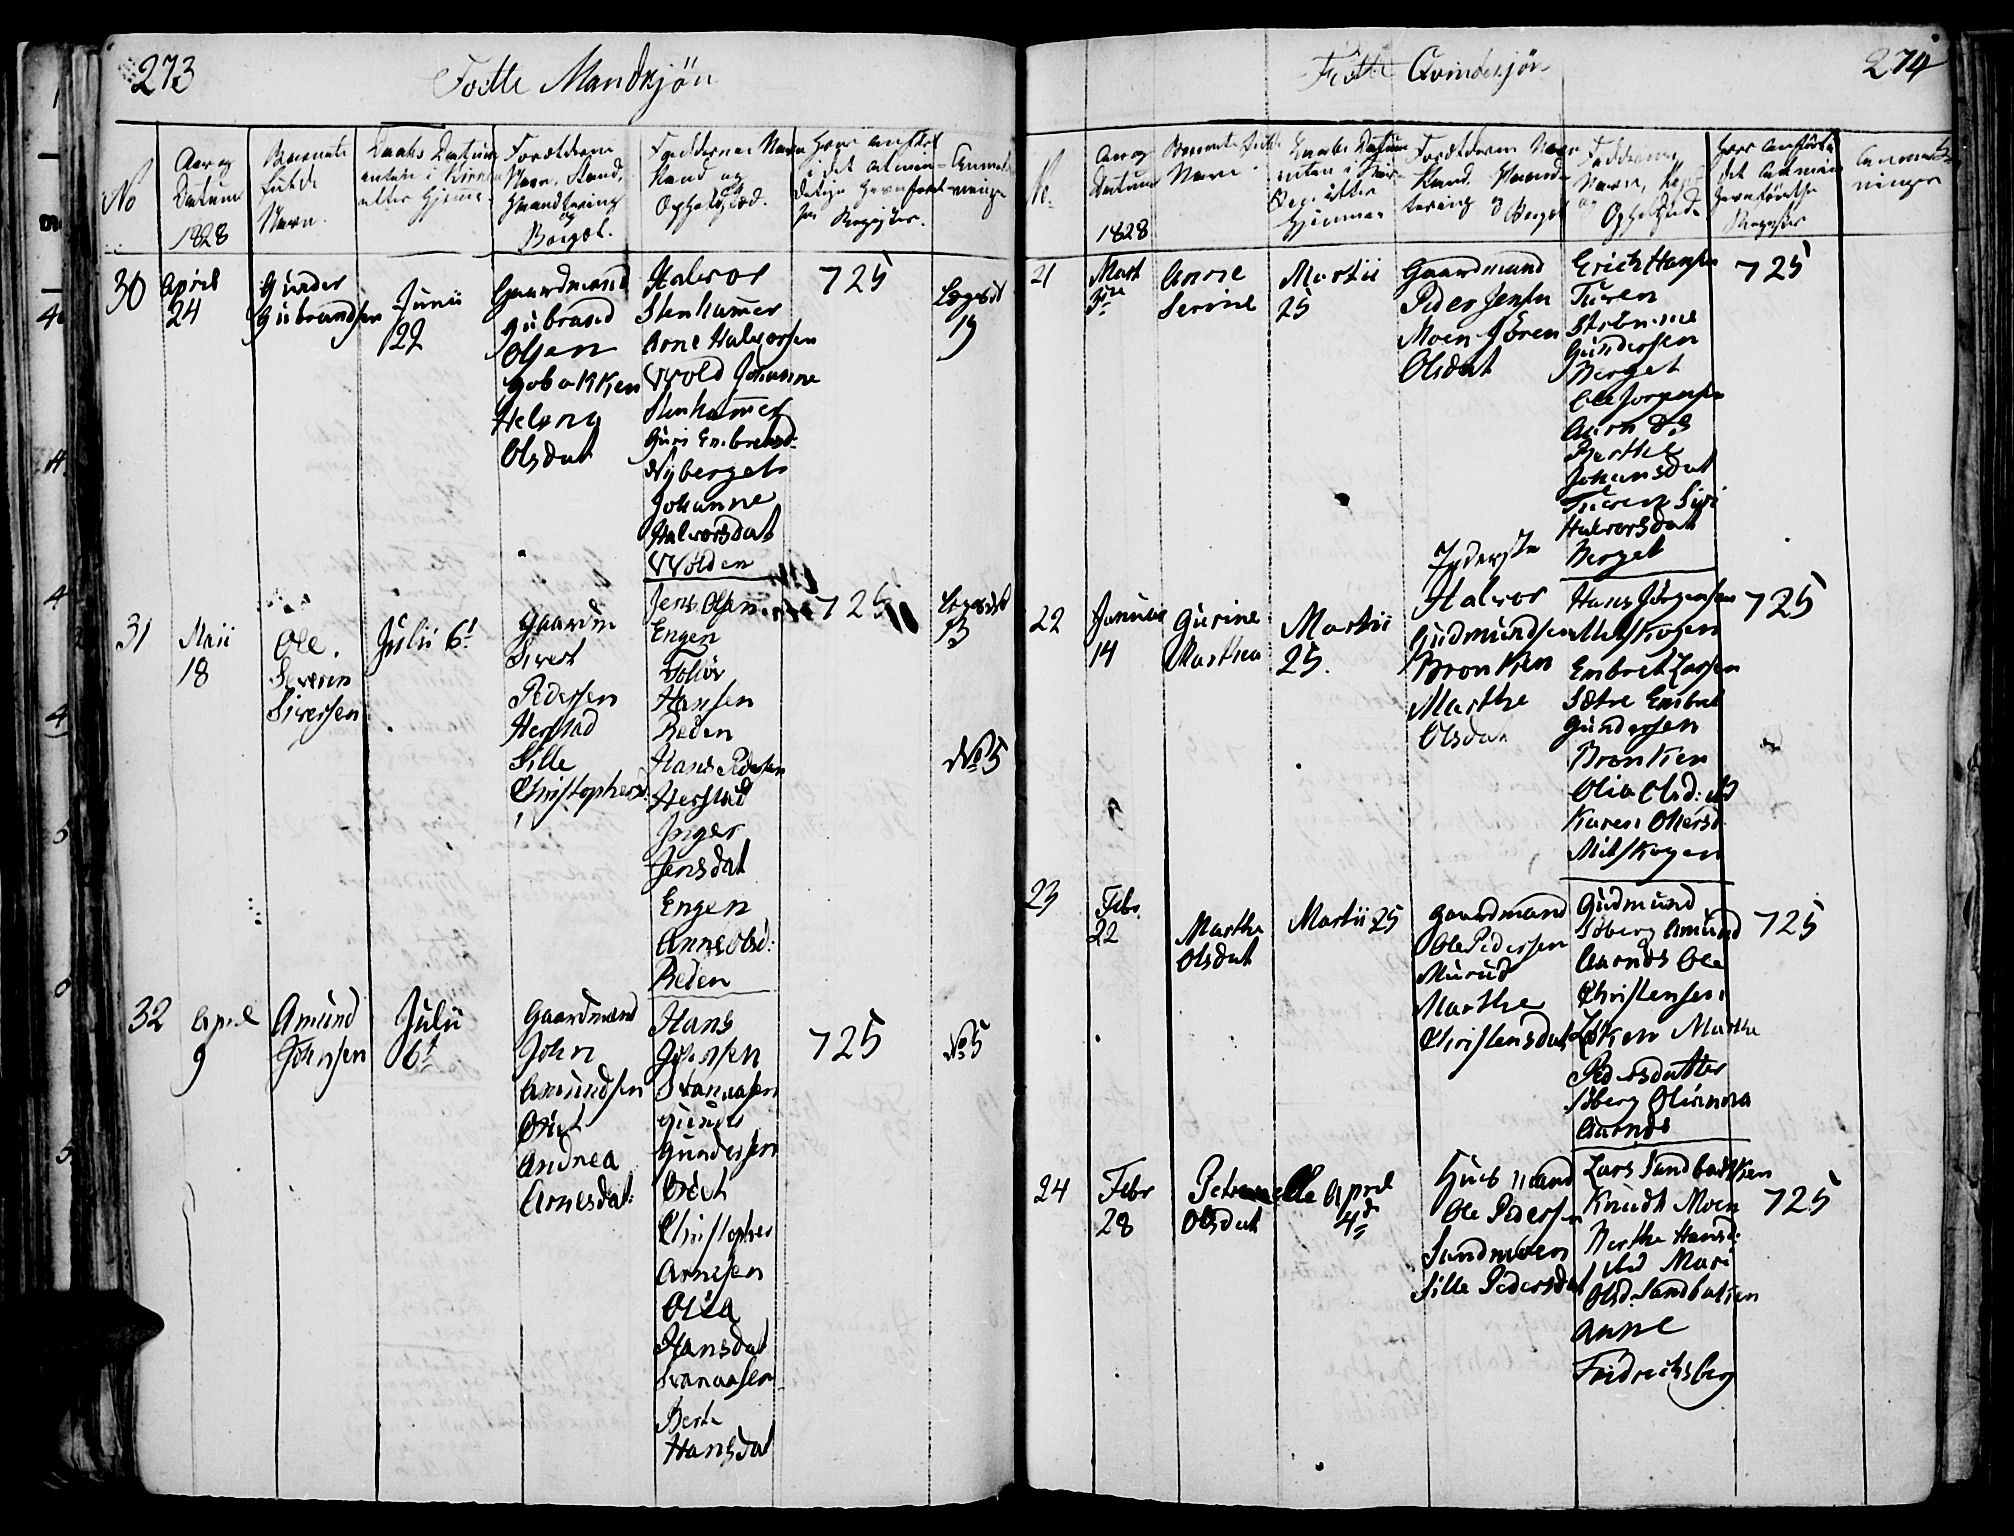 273
Fødte Mandkjön
No
Aar og
Datum
1828
Barnets
fulde
Navn.
Daabs Datum
enten i Kirken
eller Hjemme.
Forældrene
Navn, Stand,
Haandtering
og
Bopæl.
Faddernes Navn
Stand og
Opholdsted.
Hvor anført
i det almin-
delige Jevnførel-
ses Register.
30
April
24
Gunder
Gubrandsen
Junii
22
Gaardmand
Gubrand
Olsen
Helene
Olsdat
Halvor
Stenhammer
Arne Halvorsen
Wold Johanne
Stenhammer
Guri Embretsd:
Nyberget
Johanne
Halvorsdat
Wolden
725
19
31
Maii
18
Ole
Severin
Siversen
Julii 6t
Gaardm
Sivert
Pedersen
Herstad
Sille
Christophersd:
Jens Olsen
Engen
Hansen
Reden
Hans Pedersen
Herstad
Inger
Jensdat
Engen
Anne Olsd:
Reden
725
No 5
32
April
9
Amund
Johnsen
Julii
6t
Gaardmand
John
Amundsen
Andrea
Arnesdat:
Hans
Gunder
Gundersen
Christopher
Arnesen
Olia
Hansdat
Berte
Hansdat
725
No 5
274
Fødte Qvindekjön
No.
Aar og
Datum
1828
Barnets fulde
Navn.
Daabs Datum
enten i Kir-
ken eller
Hjemme
Forældrenes Navn
Stand, Haand-
tering og Bopæl
Faddernes
Navn,
og
Opholdsted.
Hvor anført i
det Almin
Jevnførelses
Register
Anmærk
ninger
21
Mart
3de
Anne
Serine
Martii
25
Gaardmand
Peder Jensen
Moen Jören
Olsdat
Erich Hansen
Turen
Strömme
Gundersen
Berget
Ole Jorgensen
Berthe
Johansdat
Turen Siri
Halvorsdat
Berget
725
22
Januar
14
Gurine
Marthea
Martii
25.
Halvor
Gudmundsen
Bronken
Marthe
Olsdat
Hans Jörgensen
Mitskogen
Embret Larsen
Sætre Embret
Gundersen
Bronken
Olia Olsd:
Karen Olsersd.
Mitskogen
725
23
Febr.
22
Marthe
Olsdat
Martii 25
Gaardmand
Ole Pedersen
Murud
Marthe
Christensdat
Gudmund
Söberg Amund
Aarnds Ole
Christensen
Löken Marthe
Pedersdatter
Söberg Olianna
Aarnds
725
24
Febr
28
Petronelle
Olsdat
April
4d
Huusmand
Ole Pedersen
Sundmoen
Sille Pedersdat
Lars Sandbakken
Knudt Moen
Berthe Hansd:
ibd Mari
Olsd: Sandbakken
Anne
Fridrichsberg
725